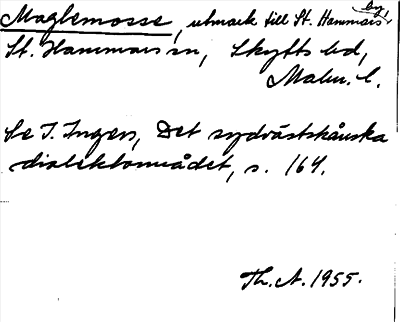 Maglemosse, utmark till St. Hammars by,
St. Hammars sn, Skytts hd,
Malm. l.
Se I. Ingers, Det sydvästskånska
dialektområdet, s. 164.
Th. A. 1955.